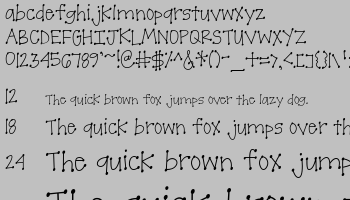 abcdefghijklmnopqrstuvwxyz
ABCDEFGHIJKLMNOPQRSTUVWXYZ
0123456789"~!@#$%^&*()-_+=?,<.[]{}|\'
12 The quick brown fox jumps over the lazy dog.
18 The quick brown fox jumps over th
24 The quick brown fox jump
The quick brown